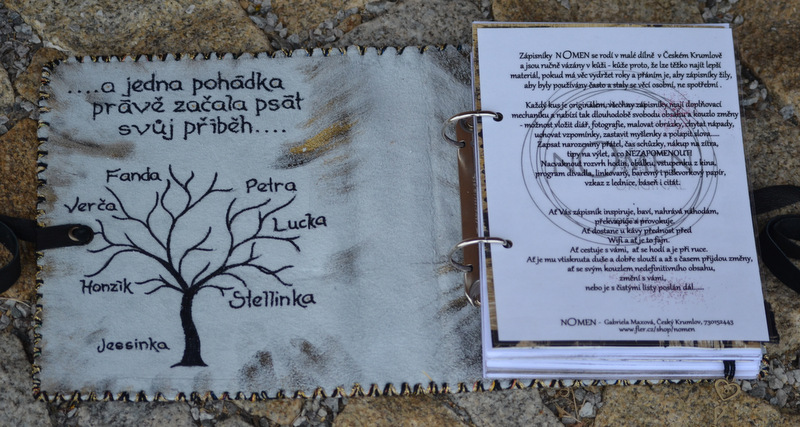 ....a jedna pohádka
právě začala psát
svůj příběh....
Fanda
Petra
Verča
Lucka
Honzík
Stellinka
Jessinka
Zápisníky NOMEN se rodí v malé dílně v Českém Krumlově
a jsou ručně vázaný v kůži - kůže proto, že lze těžko najít lepší
materiál, pokud má věc vydržet roky a přáním je, aby zápisníky žily,
aby byly používány často a staly se věcí osobní, ne spotřební.
Každý kus je originálem, všechny zápisníky mají doplňovací
mechaniku a nabízí tak dlouhodobě svobodu obsahu a kouzlo změny
- možnost vložit diář, fotografie, malovat obrázky, chytat nápady,
uchovat vzpomínky, zastavit myšlenky a polapit slova.....
Zapsat narozeniny přátel, čas schůzky, nákup na zítra,
tipy na výlet, a co NEZAPOMENOUT!
Nacvaknout rozvrh hodin, obálku, vstupenku z kina,
program divadla, linkovaný, barevný i piškvorkový papír,
vzkaz z lednice, báseň i citát.
Ať Vás zápisník inspiruje, baví, nahrává náhodám,
překvapuje a provokuje.
Ať dostane u kávy přednost před
Wifi a ať je to fajn.
Ať cestuje s vámi, ať se hodí a je při ruce.
Ať je mu vtisknuta duše a dobře slouží a až s časem přijdou změny,
ať se svým kouzlem nedefinitivního obsahu,
změní s vámi,
nebo je s čistými listy poslán dál.....
NOMEN - Gabriela Maxová, Český Krumlov, 730152443
www.fler.cz/shop/nomen